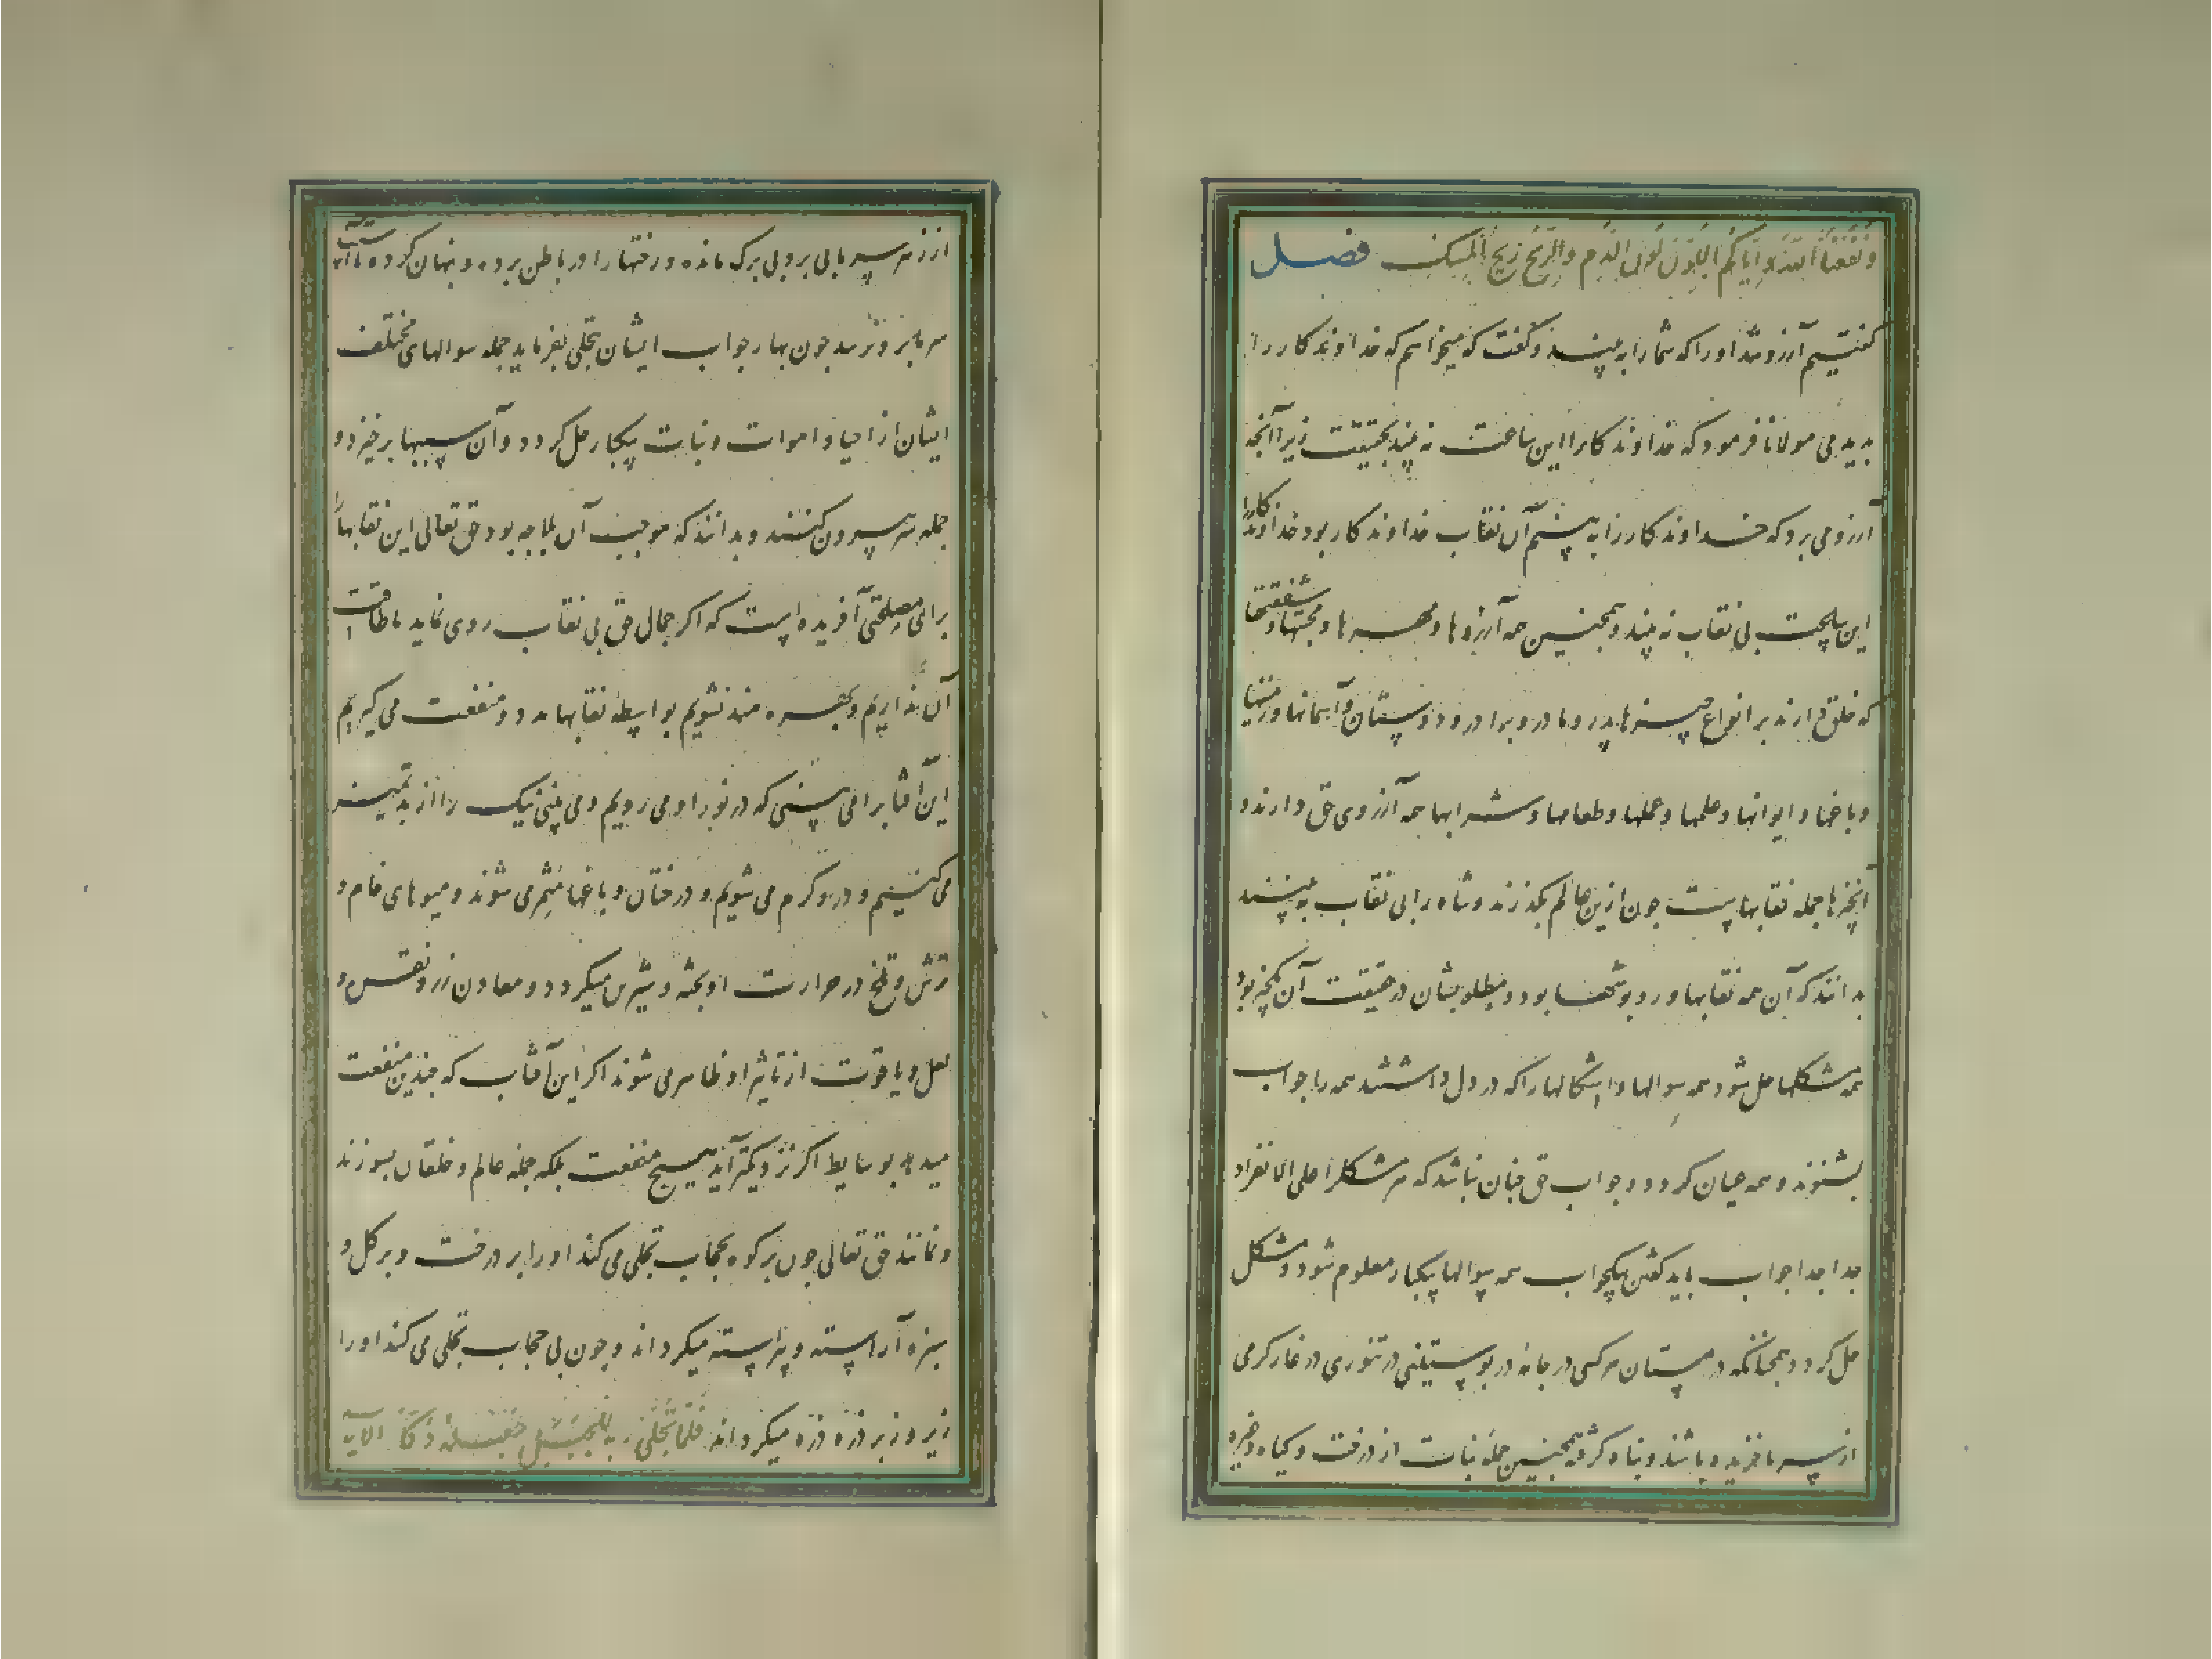 ونفعنا الله وایاکم اللون لون الدم والریح ریح المسک فصل
کفتیم آرزو شد اورا که شمارا به بیند و کفت که میخواهم که خداوندکار را
بدیدمی مولانا فرمود که خداوندکار را این ساعت نه بیند بحقیقت زیرا آنچه
آرزو می برد که خداوندکار را به بینم آن نقاب خداوندکار بود خداوندکار را
این ساعت بی نقاب نه بیند و همجنین همه آرزوها و مهرها و محبتها و شفقتها
که خلق دارند بر انواع جیزها بپدر و مادر و برادر و دوستان و آسمانها و زمینها
و باغها و ایوانها و علمها و عملها و طعامها و شرابها همه آرزوی حق دارند و
آنچیزها جمله نقابهاست جون ازین عالم بکذرند و شاه را بی نقاب به بینند
بدانند که آن همه نقابها و روبوشها بود و مطلوبشان در حقیقت آن یکچیز بود
همه مشکلها حل شود همه سوالها و اشکالها را که در دل داشتند همه را جواب
بشنوند و همه عیان کردد و جواب حق جنان نباشد که هر مشکل را علی الانفراد
جدا جدا جواب باید کفتن بیکجواب همه سوالها بیکبار معلوم شود و مشکل
حل کردد همجنانکه در زمستان هر کسی در جامه در پوستینی در تنوری در غار کرمی
از سرما خزیده باشند و پناه کرفته همجنین جمله نبات از درخت و کیاه و غیره
از زهر سرما بی بر و بی برک مانده و رختها را در باطن برده و پنهان کرده تا آسیب
سرما برو نرسد جون بهار جواب ایشان بتجلی بفرماید جمله سوالهای مختلف
ایشان از احیا و اموات و نبات بیکبار حل کردد و آن سببها برخیزد و
جمله سر بیرون کنند و بدانند که موجب آن بلا جه بود حق تعالی این نقابها را
برای مصلحتی آفریده است که اکر جمال حق بی نقاب روی نماید ما طاقت
آن نداریم و بهره مند نشویم بواسطه نقابها مدد و منفعت می کیریم
این آفتاب را می بینی که در نور او می رویم و می بینی نیک را از بد تمییز
می کنیم و درو کرم می شویم و درختان و باغها مثمر می شوند و میوهای خام و
ترش و تلخ در حرارت او پخته و شیرین میکردد و معادن زر و نقره و
لعل و یاقوت از تاثیر او ظاهر می شوند اکر این آفتاب که جندین منفعت
میدهد بوسایط اکر نزدیکتر آید هیچ منفعت بلکه جمله عالم و خلقان بسوزند
و نمانند حق تعالی جون بر کوه بحجاب تجلی می کند اورا پر درخت و پر کل و
سبزه آراسته و پیراسته میکرداند و جون بی حجاب تجلی می کند اورا
زیر و زبر و ذره ذره میکرداند فلما تجلی ربه للجبل جعله دکا الآیه